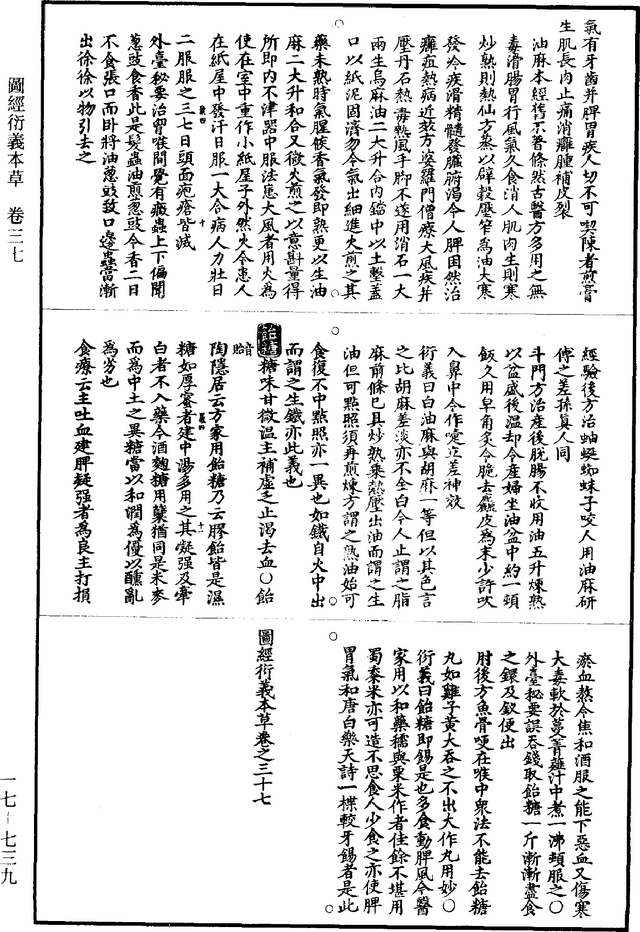 圖經衍義本草　卷三七
一七－七三九
氣有牙齒并脾胃疾人切不可喫陳者煎膏
生肌長肉止痛消癰腫補皮裂
油麻本經舊不著條然古醫方多用之無
毒滑腸胃行風氣久食消人肌肉生則寒
炒熟則熱仙方蒸以辟穀壓笮為油大寒
發冷疾滑精髓發臟腑渴令人脾困然治
癰疽熱病近效方婆羅門僧療大風疾并
壓丹石熱毒熱風手脚不遂用消石一大
兩生烏麻油二大升合内鐺中以土墼蓋
口以紙泥固濟勿令氣出細進火煎之其
藥未熟時氣腥候香氣發即熟更以生油
麻二大升和合又微火煎之以意斟量得
所即内不津器中服法患大風者用火為
使在室中重作小紙屋子外然火令患人
在紙屋中發汗日服一大合病人力壯日
二服服之三七日頭面疱瘡皆滅
外臺秘要治胷喉間覺有癥蟲上下偏聞
葱豉食香此是髮蟲油煎葱豉令香二日
不食張口而卧將油葱豉致口邊蟲當漸
出徐徐以物引去之
經驗後方治蚰蜒蜘蛛子咬人用油麻研
傅之差孫眞人同
斗門方治產後脱腸不收用油五升煉熟
以盆盛後溫却令產婦坐油盆中約一頓
飯久用皁角炙令脆去麄皮為末少許吹
入鼻中令作嚏立差神效
衍義曰白油麻與胡麻一等但以其色言
之比胡麻差淡亦不全白今人止謂之脂
麻前條已具炒熟乘熱壓出油而謂之生
油但可點照須再煎煉方謂之熟油始可
食復不中點照亦一異也如鐵自火中出
而謂之生鐵亦此義也
飴糖味甘微溫主補虚乏止渴去血○飴音貽
陶隱居云方家用飴糖乃云膠飴皆是濕
糖如厚蜜者建中湯多用之其凝强及牽
白者不入藥今酒麴糖用糵猶同是米麥
而為中土之異糖當以和潤為優以醺亂
為劣也
食療云主吐血建脾凝强者為良主打損
瘀血熬令焦和酒服之能下惡血又傷寒
大毒軟於蔓菁䪥汁中煮一沸頓服之○
外臺秘要誤吞錢取飴糖一斤漸漸盡食
之鐶及釵便出
肘後方魚骨哽在喉中衆法不能去飴糖
丸如雞子黄大吞之不出大作丸用妙○
衍義曰飴糖即餳是也多食動脾風今醫
家用以和藥糯與粟米作者佳餘不堪用
蜀黍米亦可造不思食人少食之亦使脾
胃氣和唐白樂天詩一楪較牙餳者是此
圖經衍義本草卷之三十七